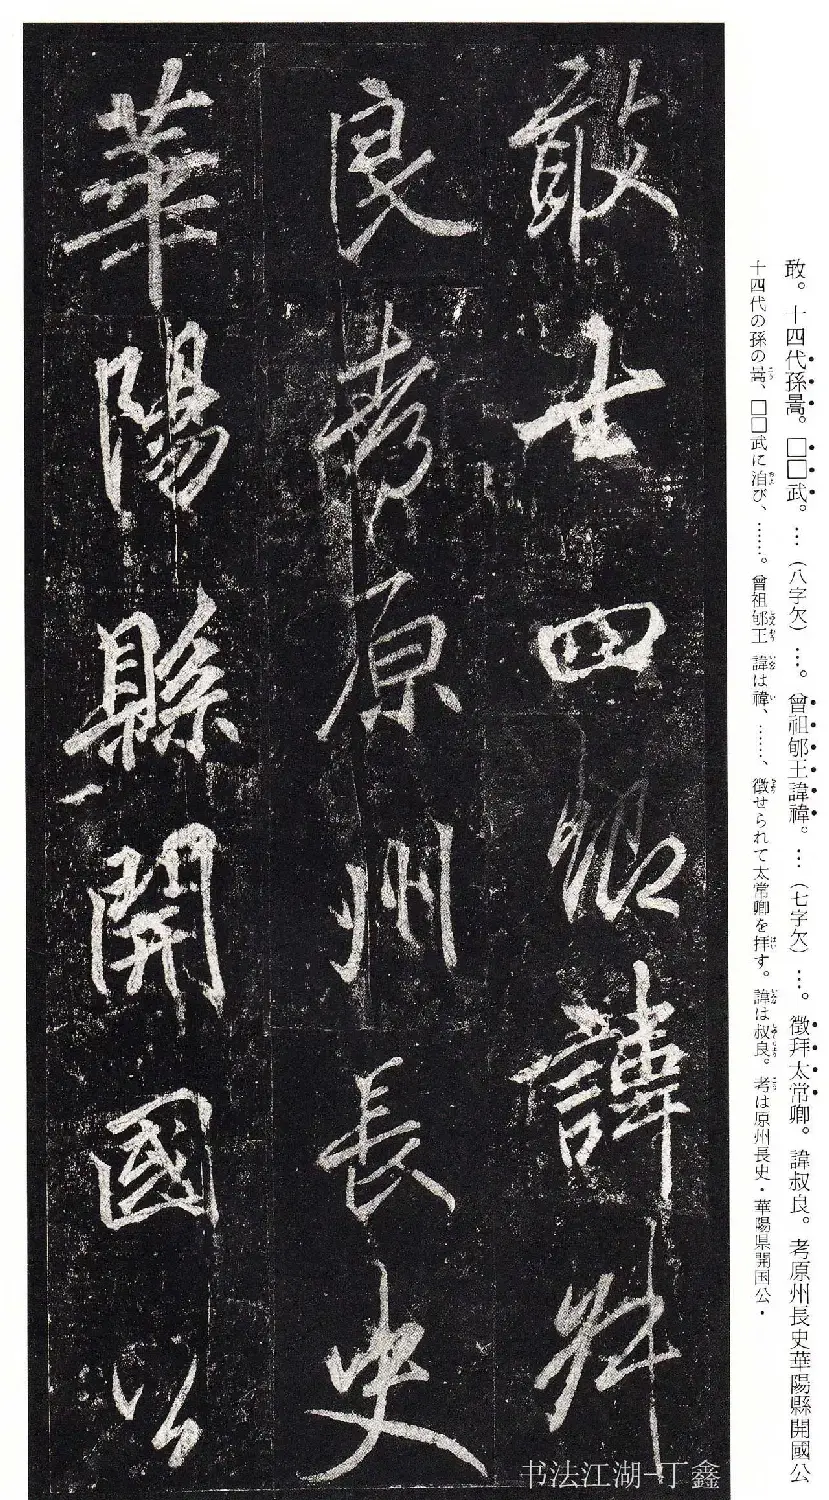 敢。十四代孫暠。□□武。…（八字欠）…。曾祖郇王諱禕。…（七字欠）…。徵拜太常卿。諱叔良。考原州長史華陽縣開國公
十四代の孫の暠、□□武に洎び、……。曾祖郇王諱は禕、……、徴せられて太常卿を拝す。諱は叔良。考は原州長史・華陽県開国公・
敢十四卿諱叔
良考原州長史
華陽縣開國公
书法江湖-丁鑫